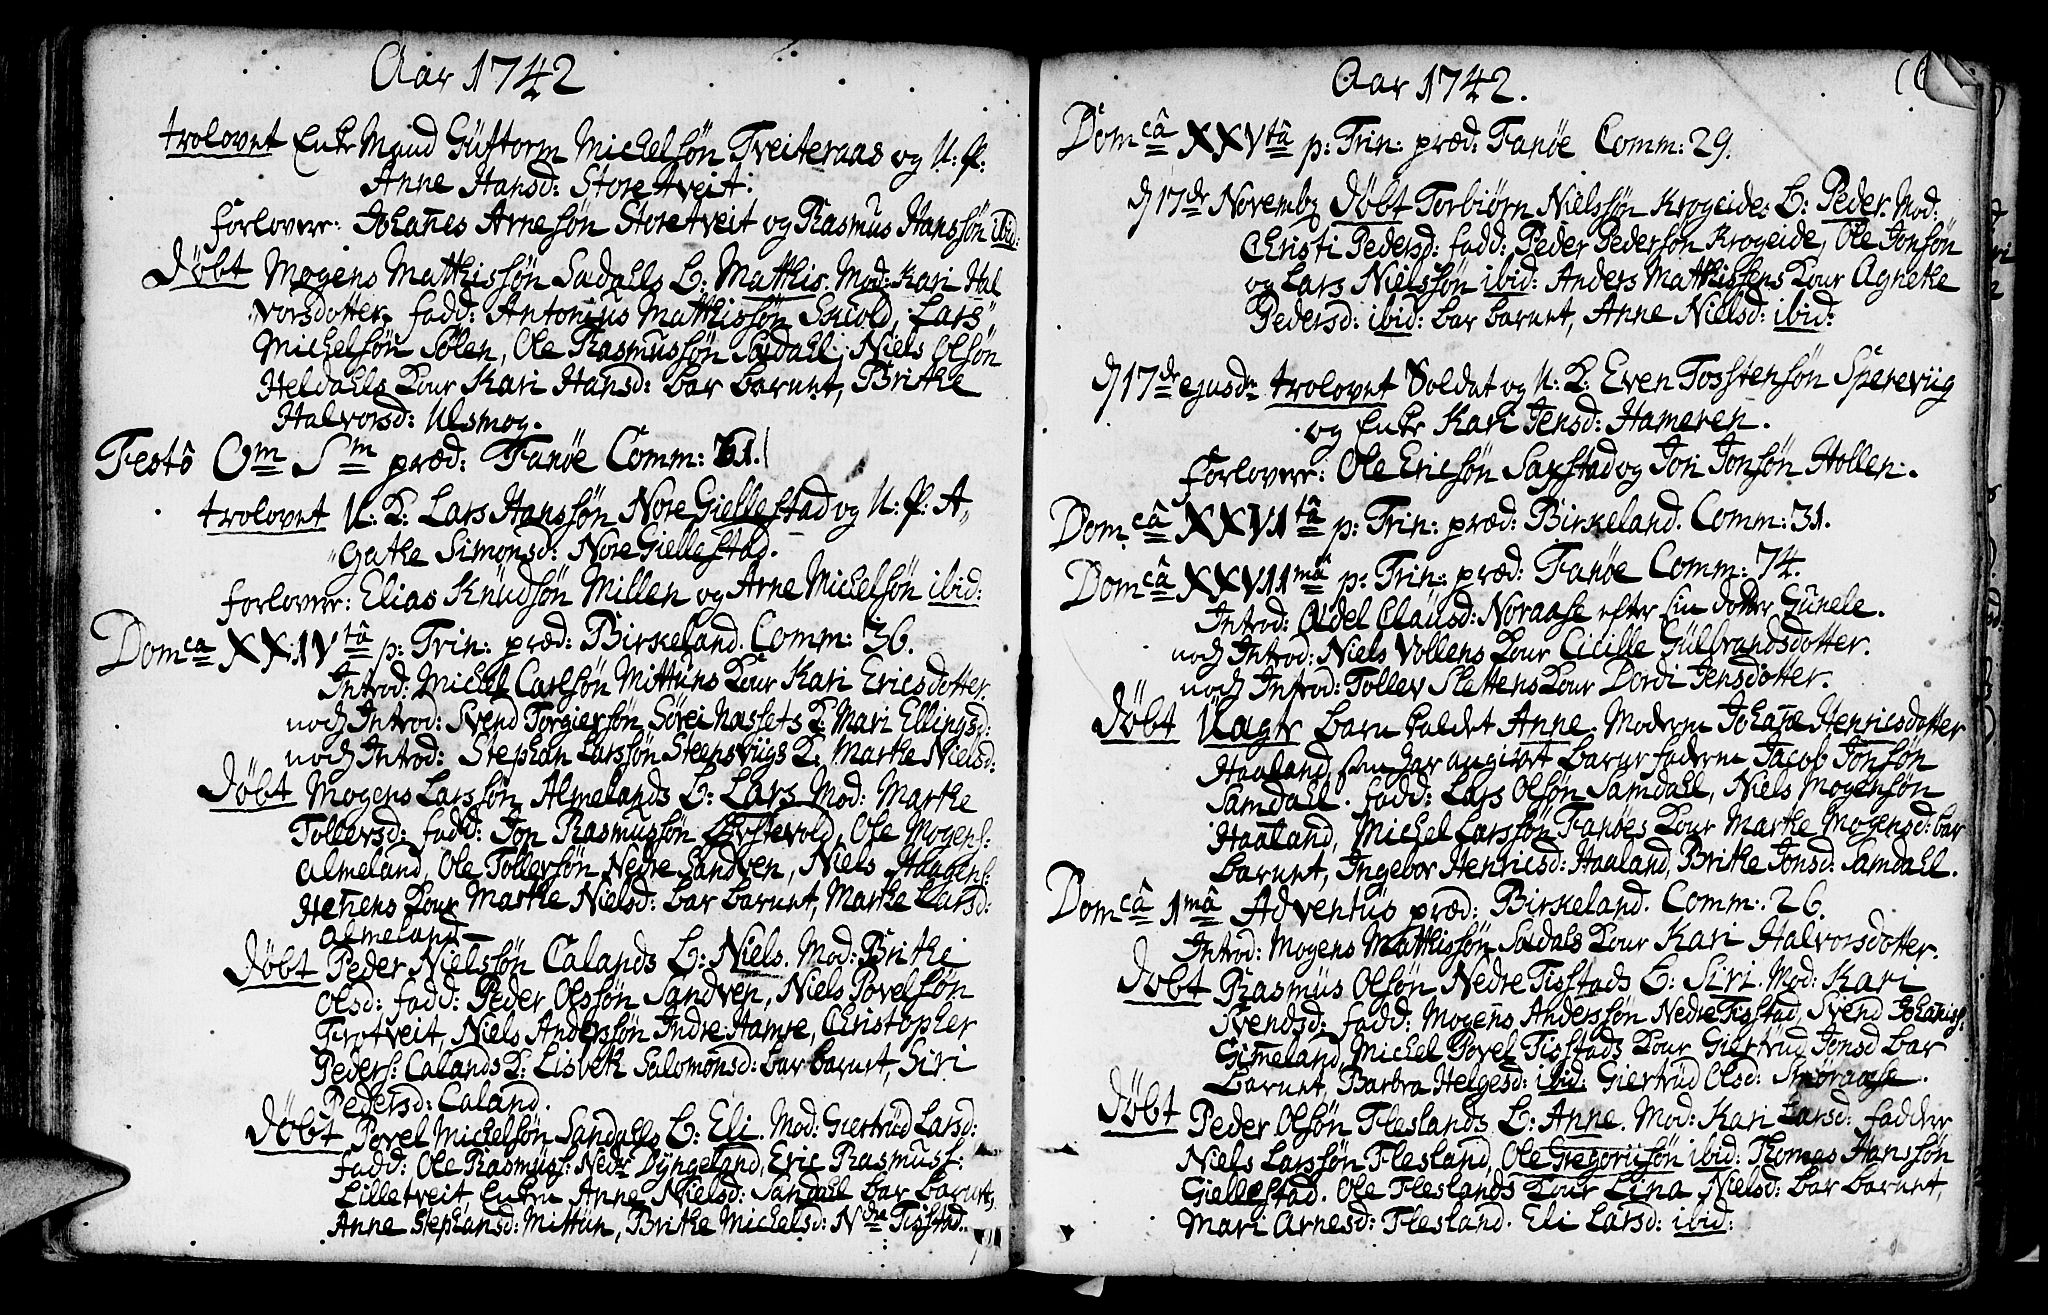 Aar 1742
trolovet Enke Mand Guttorm Michelsøn Tveiteraas og U: P:
Anne Hansd: Store Tveit.
Forlovere: Johannes Arnesøn Store Tveit og Rasmus Hanssøn ibid:
Døbt Mogens Matthissøn Sædahls B: Matthis. Mod: Kari Hal
vorsdotter, fadd: Antonius Matthissøn Lars
Michelsøn Sølen, Ole Rasmussøn Sædahl, Niels Olsøn
Heldahls Kour Kari Hansd: bar barnet, Brithe
Halvorsd: Ulsmog.
Festô Om Sm præd: Fanøe Comm: 61.
trolovet U: K: Lars Hanssøn Nore Giellestad og U: P: A,,
"Gathe Simonsd: Nore Giellestad.
Forlovere: Elias Knudsøn Millen og Arne Michelsøn ibid:
Domca XXIVtâ p: Trin: præd: Birkeland. Comm: 36.
Introd: Michel Carlsøn Mittuns Kour Kari Ericsdotter.
noch Introd: Svend Torgiersøn Sørei Nassets K: Mari Ellingsd:
noch Introd: Stephan Larssøn Steensviigs K: Marthe Nielsd:
Døbt Mogens Larssøn Almelands B: Lars Mod: Marthe
Tollevsd: fadd: Jon Rasmussøn Ole Mogens:
Almeland, Ole Tollevsøn Nedre Sandven, Niels Haagens:
Hennens Kour Marthe Nielsd: bar barnet, Marthe Larsd:
Almeland
Døbt Peder Nielssøn Calands B: Niels. Mod: Brithe
Olsd: fadd: Peder Olssøn Sandven, Niels Povelsøn
Tirotveit, Niels Anderssøn Indre Hamre, Christopher
Peders: Calands K: Lisbeth Salomonsd: bar barnet, Siri
Pedersd: Caland.
Døbt Povel Michelsøn Sandahls B: Eli. Mod: Giertrud Larsd:
fadd: Ole Rasmuss: Nedr Dyngeland, Eric Rasmuss:
Lilletveit Enken Anne Nielsd: Sandahl bar barnet,
Anne Stephansd: Mittun, Brithe Michelsd: Ndre Tisstad.
Aar 1742.
Domcâ XXVtâ p: Trin: præd: Fanøe Comm: 29.
d 17de Novemb Døbt Torbiørn Nielssøn Krogeide: B: Peder. Mod:
Christi Pedersd: fadd: Peder Pedersøn Krogeide, Ole Jonsøn
og Lars Nielssøn ibid: Anders Matthissens Kour Agnethe
Pedersd: ibid: bar barnet, Anne Nielsd: ibid:
d 17de ejusd: trolovet Soldat og U: K: Even Tosstensøn Spereviig
og Enke Kari Jensd: Hameren.
Forlovere: Ole Ericsøn Saxstad og Jon Jonsøn Hollen.
Domcâ XXVItâ p: Trin: præd: Birkeland. Comm: 31.
Domcâ XXVIImâ p: Trin: præd: Fanøe Comm: 74.
Introd: Aldel Clausd: Noraase efter sin dotter Gunele.
noch Introd: Niels Vollens Kour Cicille Gulbrandsdotter.
noch Introd: Tollev Slettens Kour Dordi Jensdotter.
Døbt Uægte barn kaldet Anne. Moderen Johanne Henricsdotter
Haaland, som har angivet barnefaderen Jacob Jonsøn
Samdahl. fadd: Lars Olsøn Samdahl, Niels Mogensøn
Haaland, Michel Larssøn Fanøes Kour Marthe Mogensd: bar
barnet, Ingebor Henricsd: Haaland, Brithe Jonsd: Samdahl.
Domcâ 1mâ Adventus præd: Birkeland. Comm: 26.
Introd: Mogens Matthissøn Sædals Kour Kari Halvorsdotter.
Døbt Rasmus Olsøn Nedre Tisstads B: Siri. Mod: Kari
Svendsd: fadd: Mogens Anderssøn Nedre Tisstad, Svend Johaniss:
Gimeland, Michel Povel Tisstads Kour Giertrud Jonsd bar
barnet, Barbra Helgesd: ibid: Giertrud Olsd: Smøraase.
Døbt Peder Olsøn Fleslands B: Anne. Mod: Kari Larsd: fadder
Niels Larssøn Flesland, Ole Gregoriisøn ibid: Thomas Hanssøn
Giellestad. Ole Fleslands Kour Lina Nielsd: bar barnet,
Mari Arnesd: Flesland. Eli Larsd: ibid: